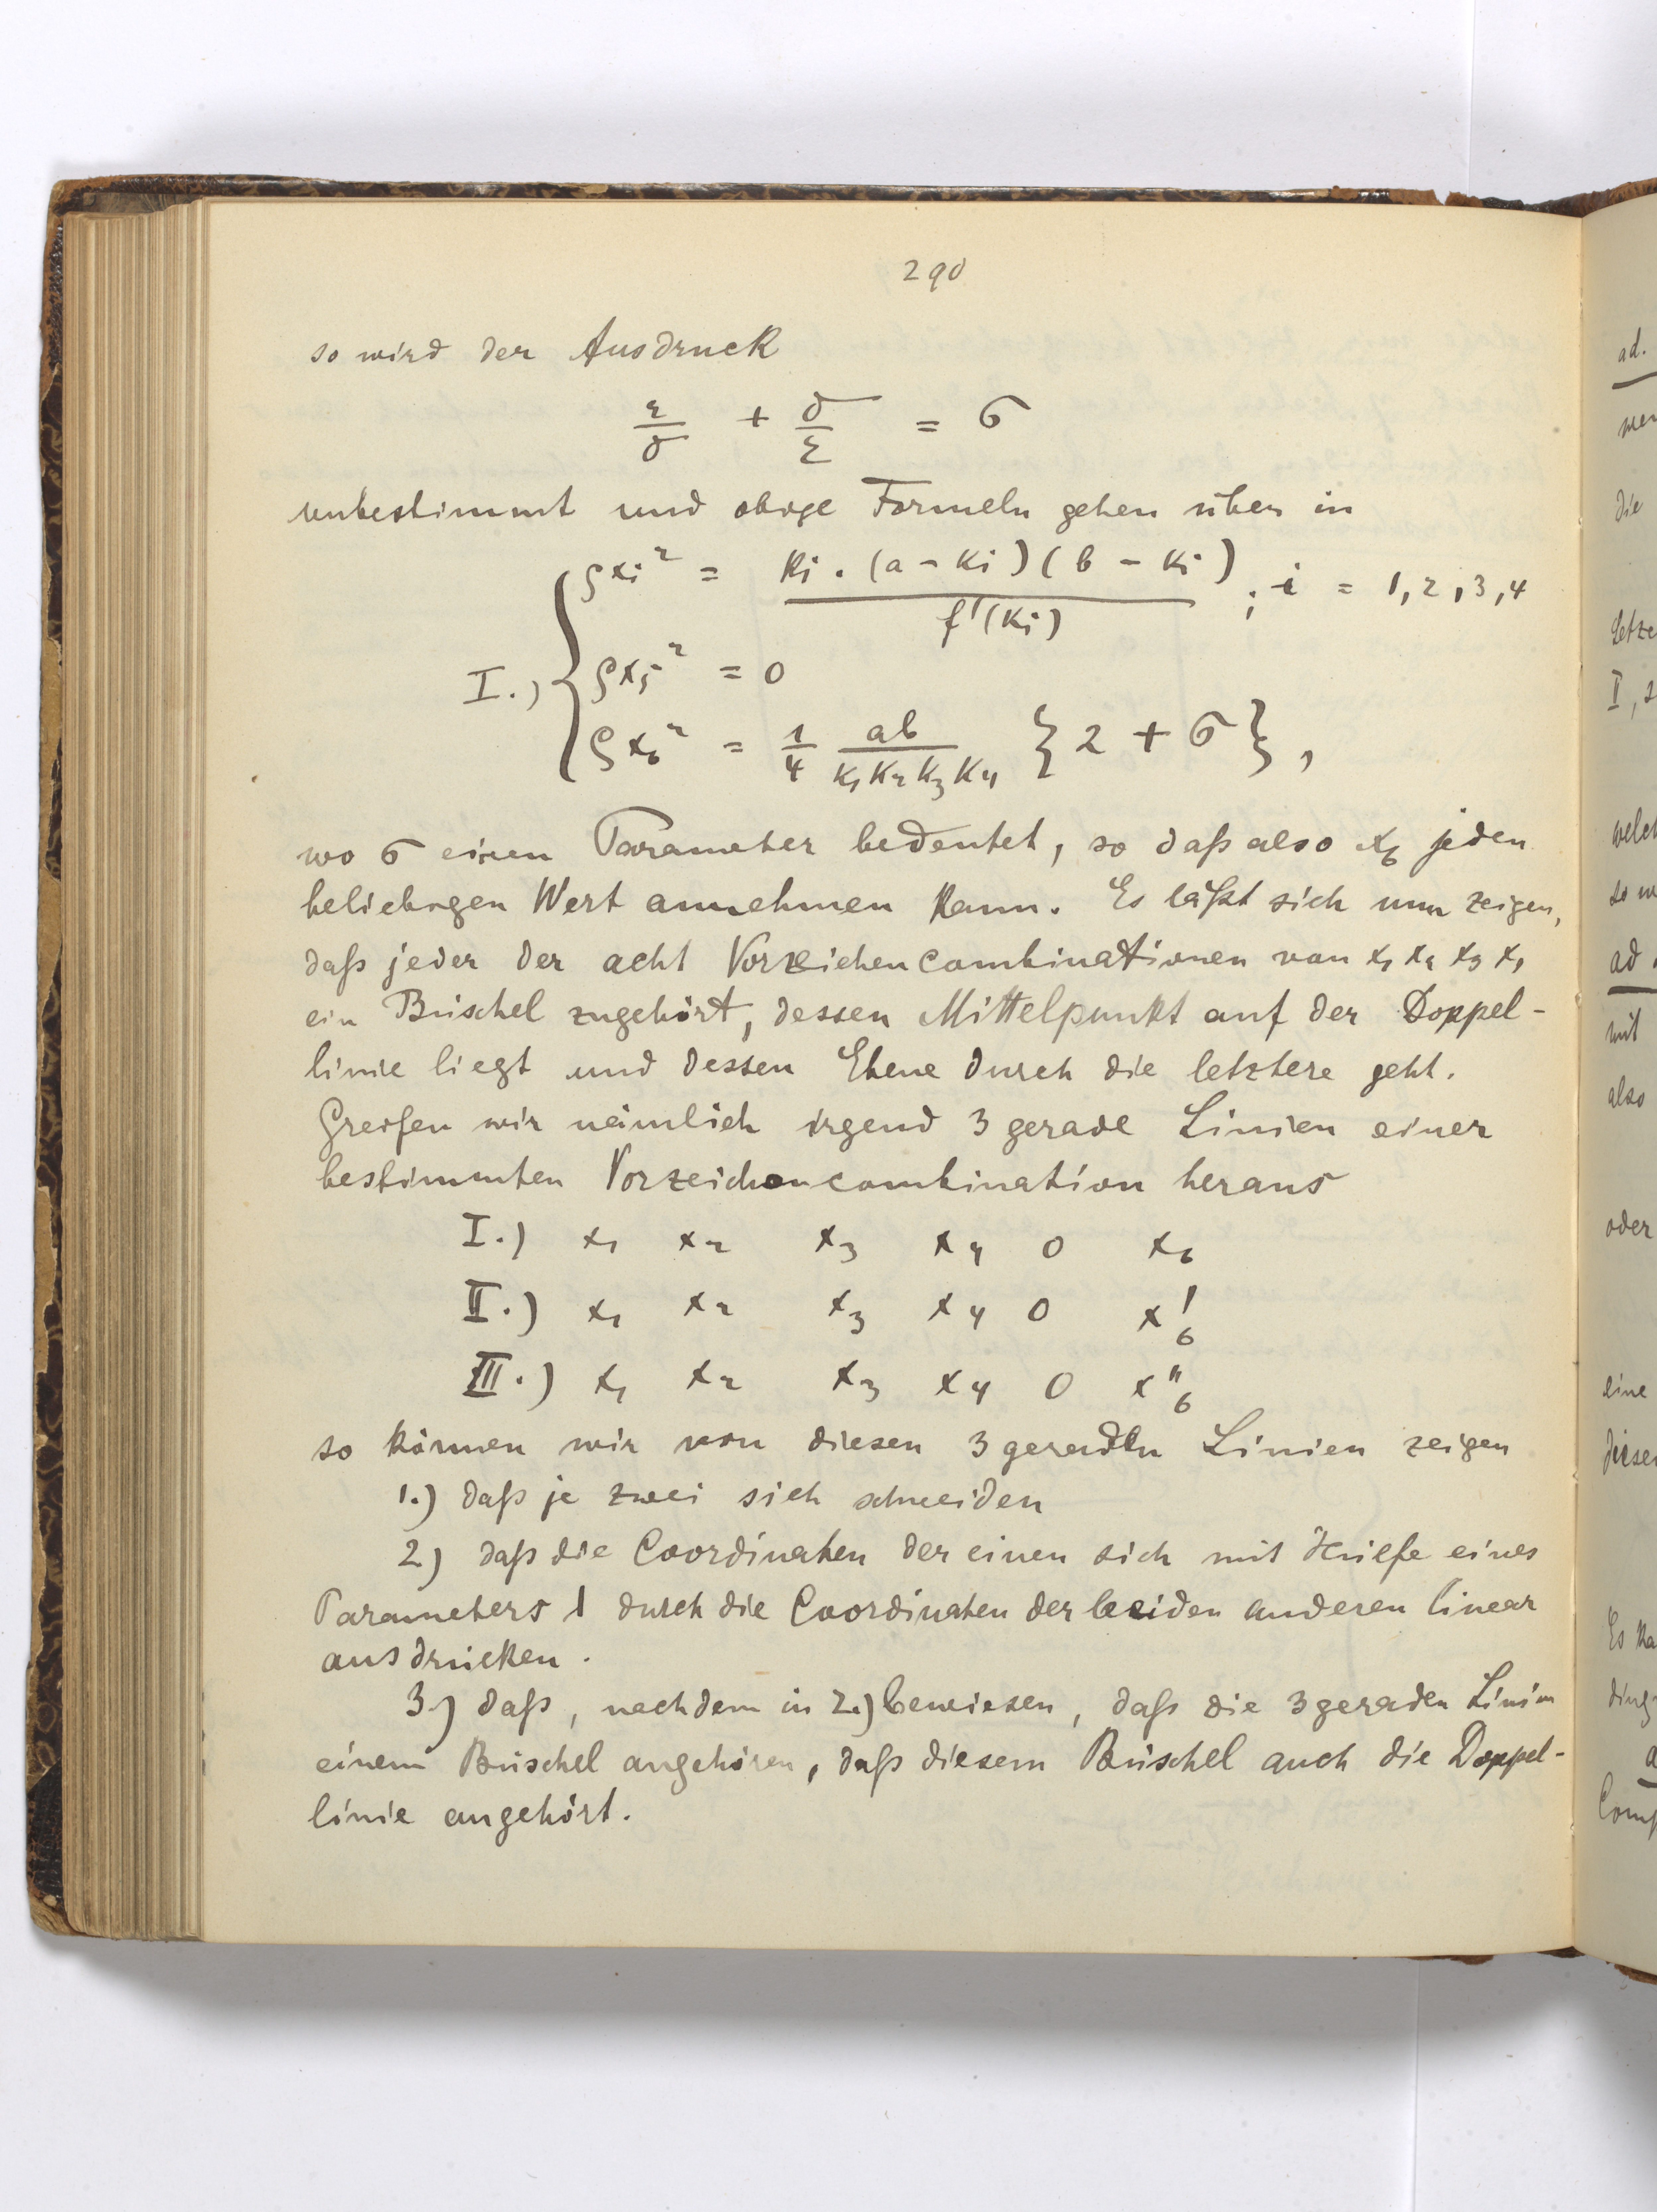 290
so wird der Ausdruck
τ/σ + σ/τ = σ
unbestimmt und obige Formeln gehen über in
ρxi² = ki . (a - ki)(b - ki) / f'(ki) ; i = 1, 2, 3, 4
I.) ρx5² = 0
ρx6² = 1/4 ab/k1k2k3k4 {2 + σ},
wo σ einen Parameter bedeutet, so daß also x6 jeden
beliebigen Wert annehmen kann. Es läßt sich nun zeigen,
daß jeder der acht Vorzeichencombinationen von x1 x2 x3 x4
ein Büschel zugehört, dessen Mittelpunkt auf der Doppel-
linie liegt und dessen Ebene durch die letztere geht.
Greifen wir nämlich irgend 3 gerade Linien einer
bestimmten Vorzeichencombination heraus
I.) x1 x2 x3 x4 0 x6
II.) x1 x2 x3 x4 0 x'6
III.) x1 x2 x3 x4 0 x"6
so können wir von diesen 3 geraden Linien zeigen
1.) daß je zwei sich schneiden
2) daß die Coordinaten der einen sich mit Hülfe eines
Parameters λ durch die Coordinaten der beiden anderen linear
ausdrücken.
3.) daß, nachdem in 2.) bewiesen, daß die 3 geraden Linien
einem Büschel angehören, daß diesem Büschel auch die Doppel-
linie angehört.
ad.
die
I, 2
so w
ad
mit
also
oder
eine
Es ka